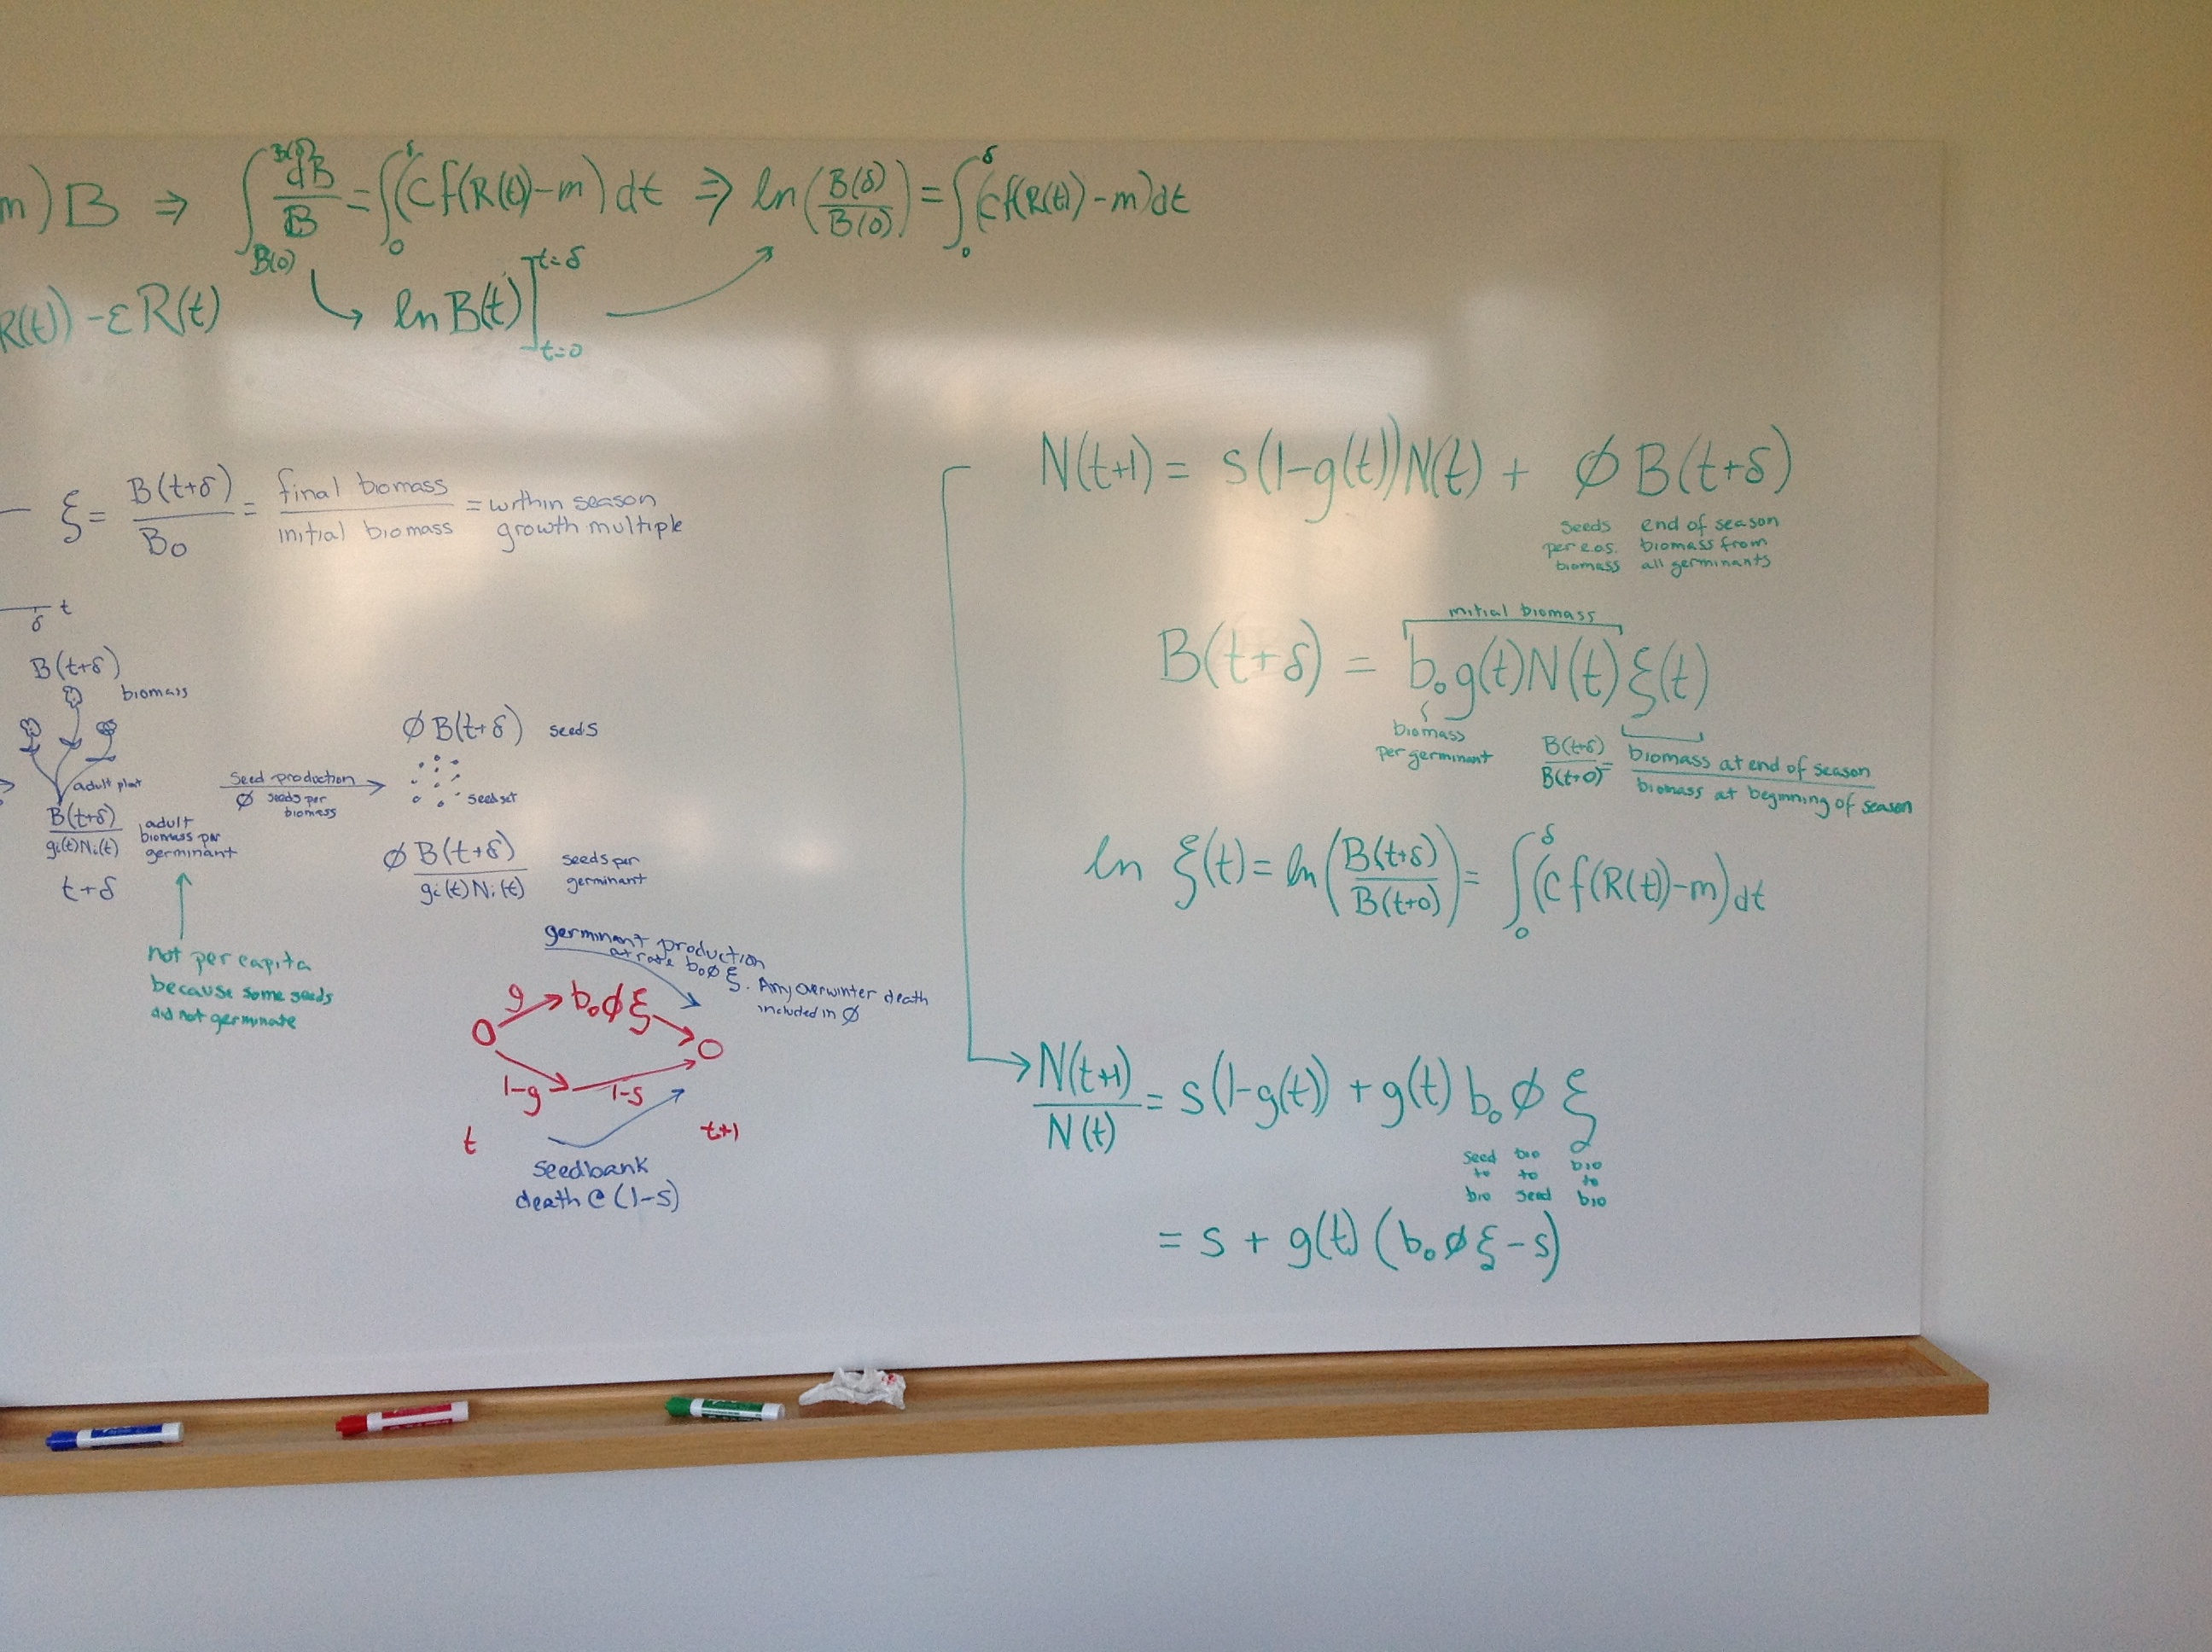 m)B ⇒ ∫_{B(0)}^{B(δ)} dB/B = ∫_0^δ (Cf(R(t)-m)dt ⇒ ln(B(δ)/B(0)) = ∫_0^δ (Cf(R(t))-m)dt
R(t)) -εR(t)
ln B(t)]
t=δ
t=0
ξ = B(t+δ)/B0 = final biomass/initial biomass = within season
growth multiple
t
δ
B(t+δ)
biomass
adult plant
B(t+δ)/gi(t)Ni(t)
adult
biomass per
germinant
t+δ
not per capita
because some seeds
did not germinate
seed production
Ø seeds per
biomass
ØB(t+δ) seeds
seed set
ØB(t+δ)/gi(t)Ni(t)
seeds per
germinant
germinant production
at rate b0Øξ. Any overwinter death
included in Ø
g
b0Øξ
O
O
1-g
1-s
t
t+1
seedbank
death @ (1-s)
N(t+1) = s(1-g(t))N(t) + ØB(t+δ)
seeds
per e.o.s.
biomass
end of season
biomass from
all germinants
initial biomass
B(t+δ) = b0g(t)N(t)ξ(t)
biomass
per germinant
B(t+δ)/B(t+0) = biomass at end of season/biomass at beginning of season
ln ξ(t) = ln(B(t+δ)/B(t+0)) = ∫_0^δ (Cf(R(t)-m)dt
N(t+1)/N(t) = s(1-g(t)) + g(t)b0Øξ
seed
to
bio
bio
to
seed
bio
to
bio
= s + g(t)(b0Øξ-s)